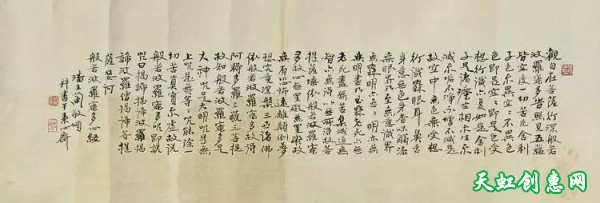 觀自在菩薩行深般若
波羅蜜多時照見五蘊
皆空度一切苦厄舍利
子色不異空空不異色
色即是空空即是色受
想行識亦復如是舍利
子是諸法空相不生不
滅不垢不淨不增不減是
故空中無色無受想
行識無眼耳鼻舌
身意無色聲香味觸法
無眼界乃至無意識界
無無明亦無
無明盡乃至無老死亦無
老死盡無苦集滅道無
智亦無得以無所得故菩
提薩埵依般若波羅蜜
多故心無罣礙無罣礙故
無有恐怖遠離顛倒夢
想究竟涅槃三世諸佛
依般若波羅蜜多故得
阿耨多羅三藐三菩提
故知般若波羅蜜多是
大神咒是大明咒是無
上咒是無等等咒能除一
切苦真實不虛故說
般若波羅蜜多咒即說
咒曰揭諦揭諦波羅揭
諦波羅僧揭諦菩提
薩婆訶
般若波羅蜜多心經
天虹创惠网